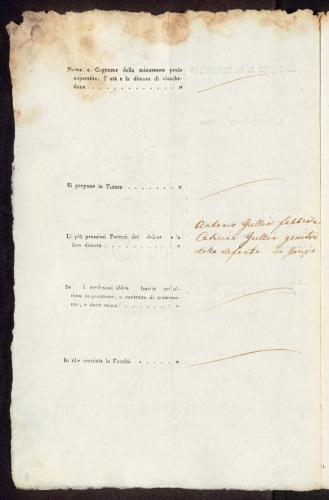 Nome e Cognome della minorenne prole
superstite, l' età e la dimora di ciasche-
duna . . . . . . . . . . . . . . „
Si propone in Tutore . . . . . . „
Li più prossimi Parenti del defunto e la
loro dimora . . . . . . . . . . . „
Antonio Gullin
Caterina Gullin genitori
della defonta in Gorizia
Se i medesimi abbia
disposizione, o contratto di matrimo-
nio, e dove esista? . . . . . . . . „
In che consista la Facoltà . . . . . . „